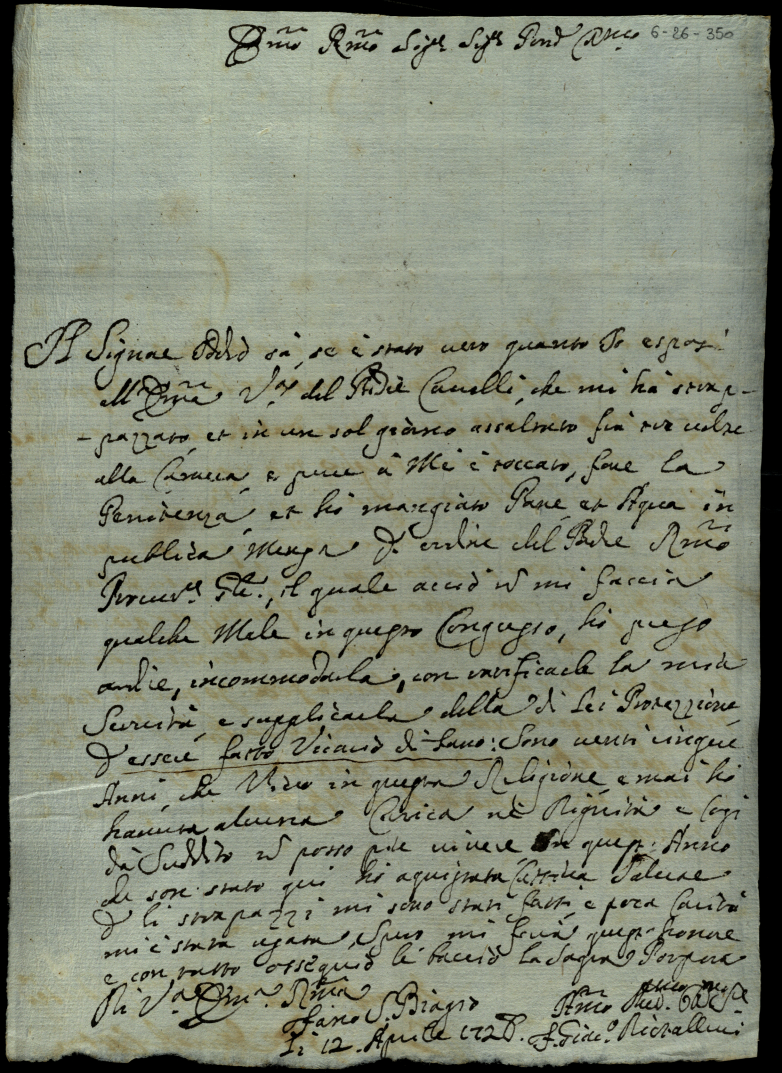 Em̃o Rm̃o Sig.r Sig.r Pron̄e
6-26-350
Il Signore Iddio sà, se è stato vero quanto Io esposi
all' Em̃a V.a del Padre Cavalli, che mi hà strap-
-pazzato, et in un sol giorno assaltato fin tre volte
alla Camera, e pure à Mè è toccato, fare la
Penitenza, et hò mangiato Pane, et Aqua in
publica Mensa d'ordine del Padre Rm̃o
Procur.e Gñle, il quale acciò nõ mi faccia
qualche Male in questo Congresso, hò preso
ardire, incommodarla, con ratificarle la mia
Servitù, e supplicarla della di Lei Protezzione
d'essere fatto Vicario di Fano: Sono venti cinque
Anni, che Vivo in questa Religione, e mai hò
havuta alcuna Carica nè Dignità e Cosi
dà Suddito nõ posso più vivere in quest' Anno
che son stato qui hò aquistata Cattiva Salute
d li strapazzi mi sono stati fatti, e poca Carità
mi è stata usata, Spero mi farà quest' honore
e con tutto ossequio le baccio la Sagra Porpora
Di V.a Em.a Rm̃a
Fano S. Biagio
Li 12. Aprile 1728.